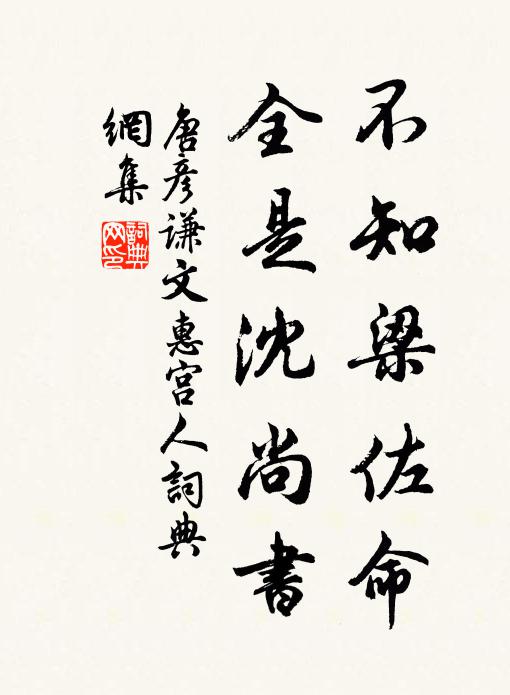 不知梁佐命
全是沈尚書
唐彥謙文惠宮人詞典
網集
詞典
网印